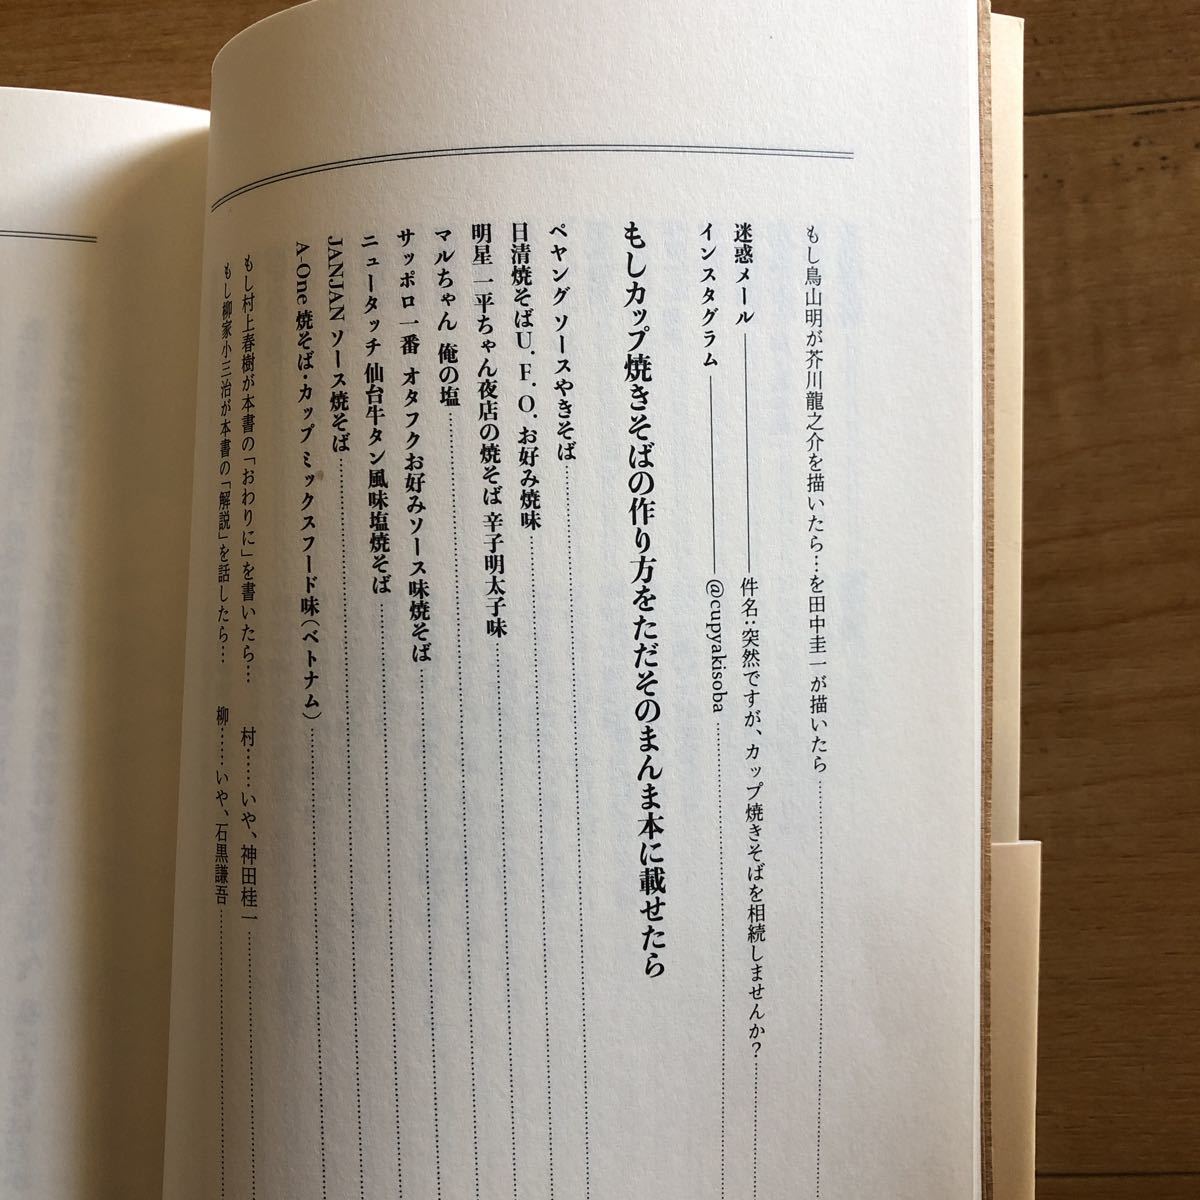 もし鳥山明が芥川龍之介を描いたら…を田中圭一が描いたら
迷惑メール 件名：突然ですが、カップ焼きそばを相続しませんか？
インスタグラム @cupyakisoba
もしカップ焼きそばの作り方をただそのまんま本に載せたら
ペヤング ソースやきそば
日清焼そばU.F.O. お好み焼味
明星 一平ちゃん夜店の焼そば 辛子明太子味
マルちゃん 俺の塩
サッポロ一番 オタフクお好みソース味焼そば
ニュータッチ 仙台牛タン風味塩焼そば
JANJAN ソース焼そば
A-One 焼そば・カップ ミックスフード味（ベトナム）
もし村上春樹が本書の「おわりに」を書いたら… 村……いや、神田桂一
もし柳家小三治が本書の「解説」を話したら… 柳……いや、石黒謙吾